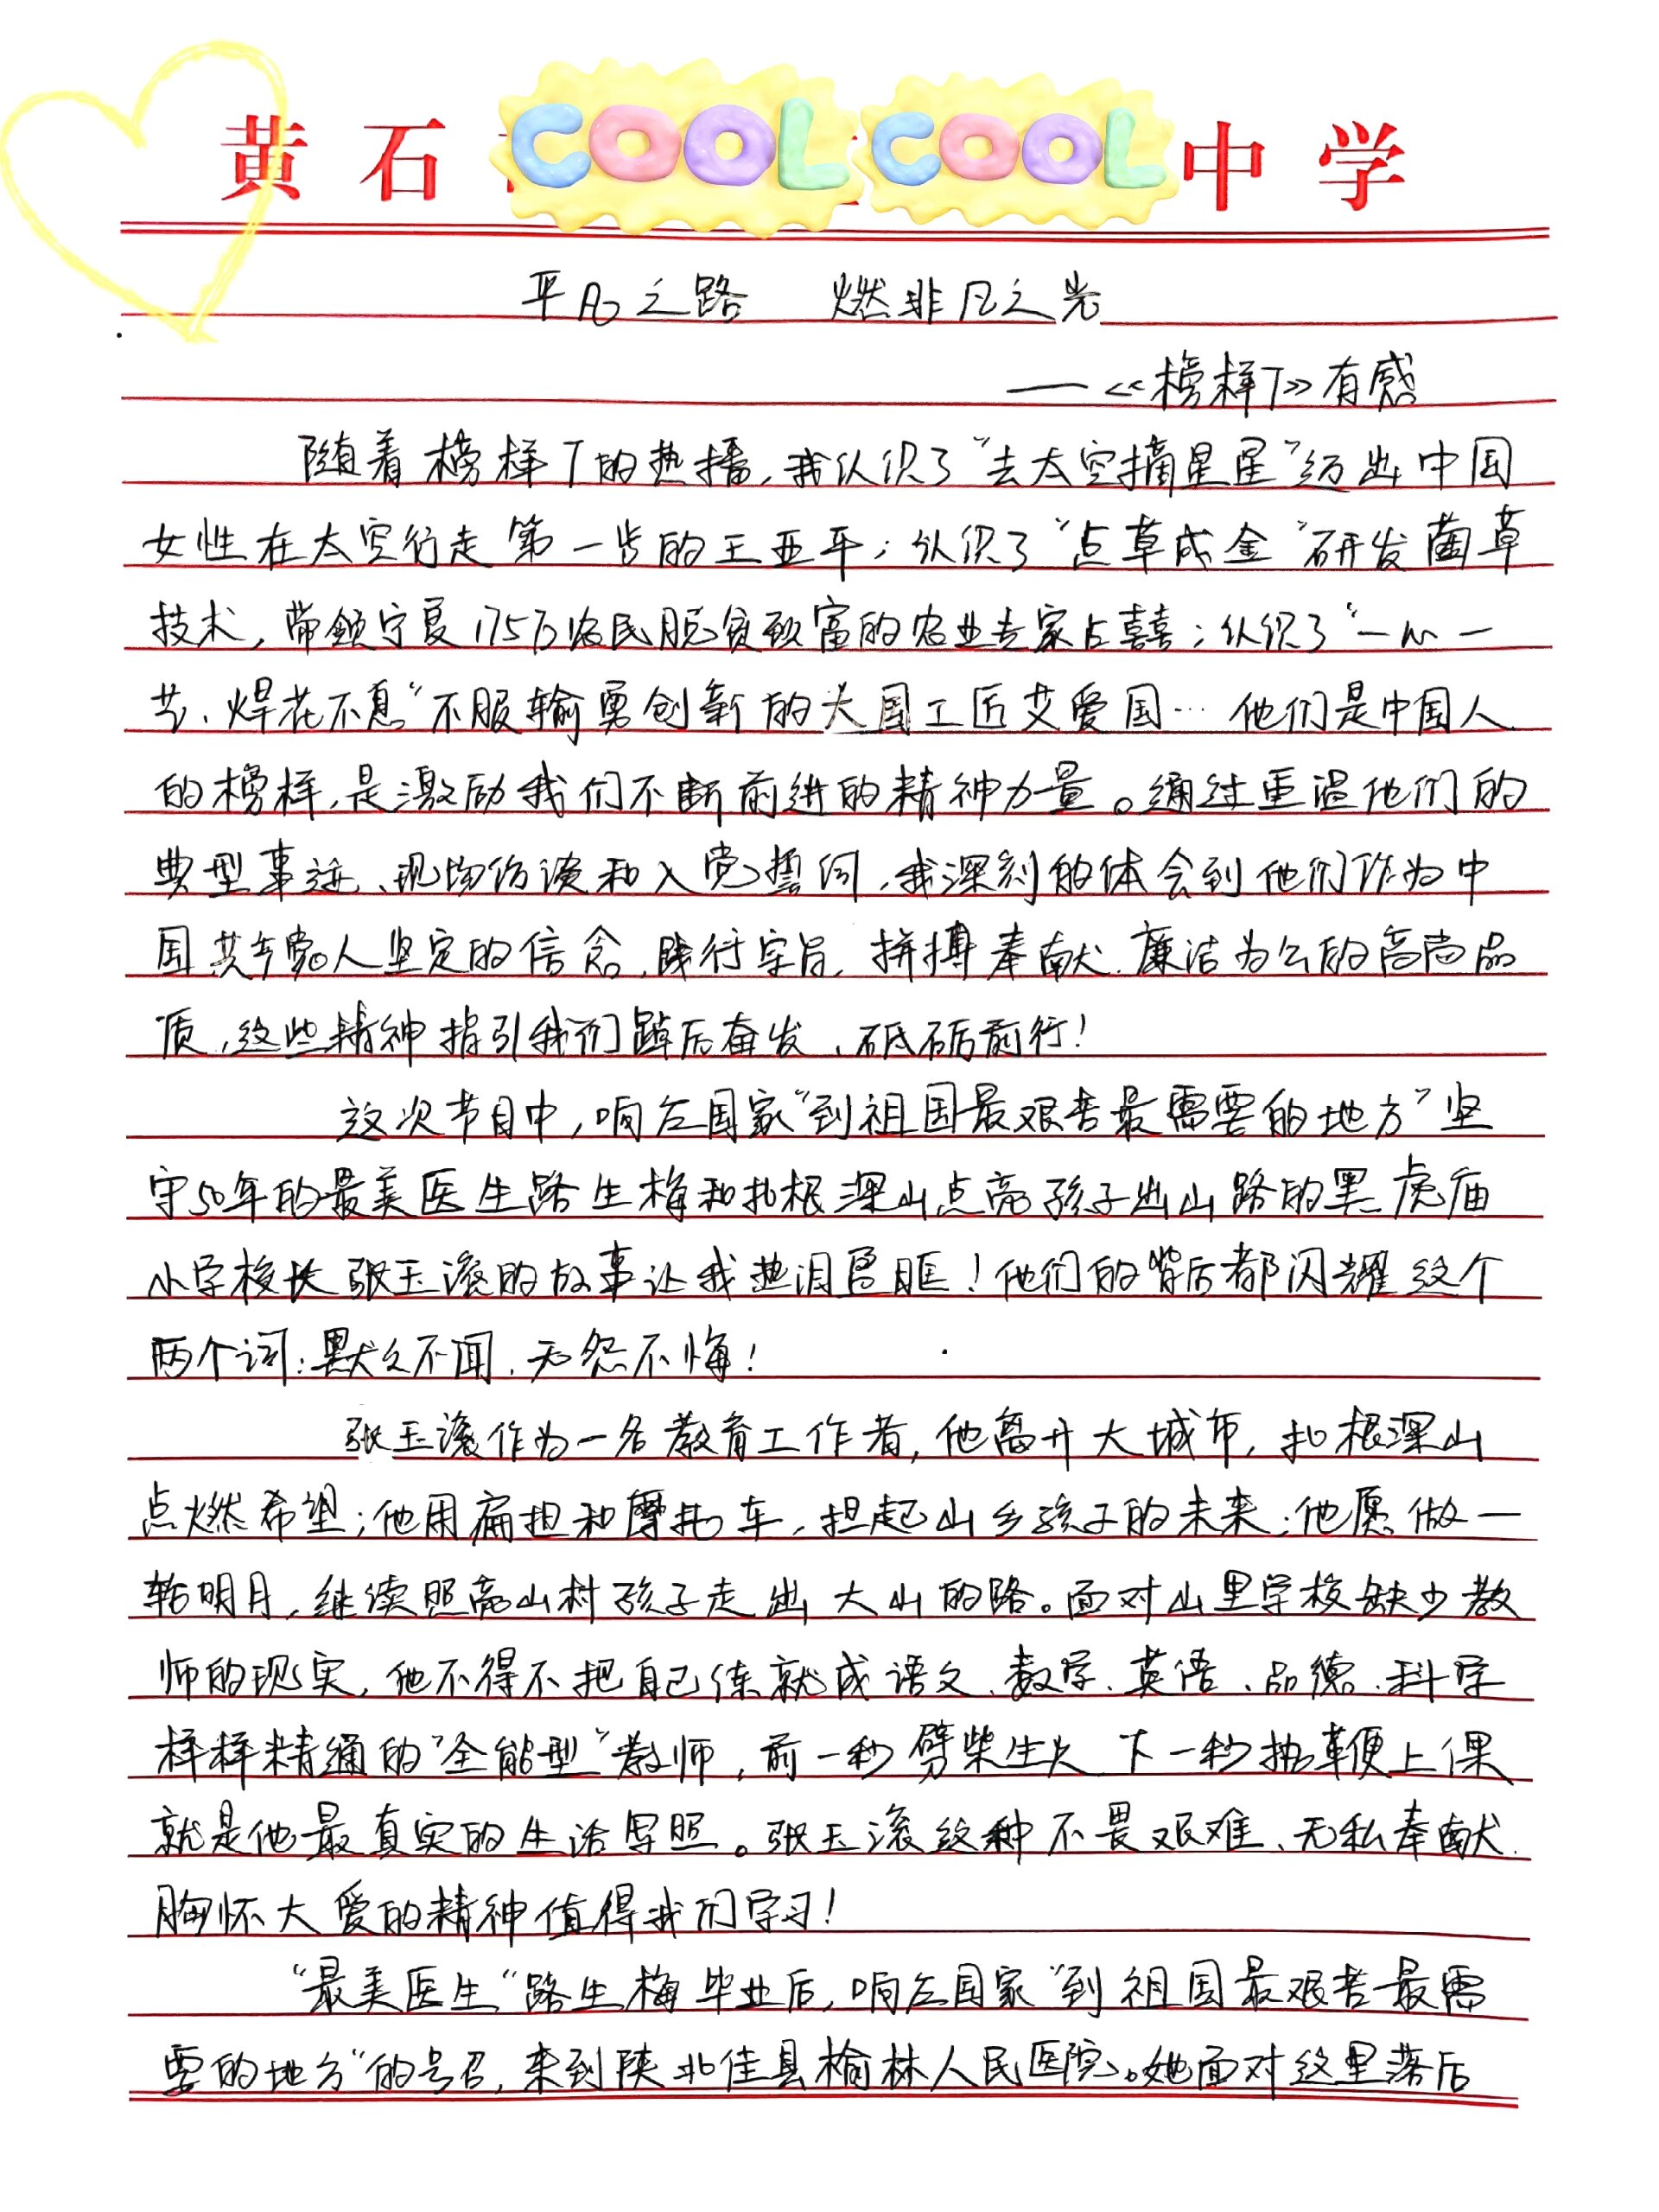 黄石 COOL COOL 中学
平凡之路 燃非凡之光
——《榜样7》有感
随着榜样7的热播,我认识了“去太空摘星星”迈出中国
女性在太空行走第一步的王亚平;认识了“点草成金”研发菌草
技术,带领宁夏175万农民脱贫致富的农业专家占喜喜;认识了“一心一
艺、焊花不息”不服输勇创新的大国工匠艾爱国… 他们是中国人
的榜样,是激励我们不断前进的精神力量。通过重温他们的
典型事迹、现场访谈和入党誓词,我深刻的体会到他们作为中
国共产党人坚定的信念、践行宗旨、拼搏奉献、廉洁为公的高尚品
质,这些精神指引我们踔厉奋发、砥砺前行!
这次节目中,响应国家“到祖国最艰苦最需要的地方”坚
守50年的最美医生路生梅和扎根深山点亮孩子出山路的黑虎庙
小学校长张玉滚的故事让我热泪盈眶!他们的背后都闪耀这个
两个词:默久不闻、无怨不悔!
张玉滚作为一名教育工作者,他离开大城市,扎根深山
点燃希望;他用扁担和摩托车,担起山乡孩子的未来;他愿做一
轮明月,继续照亮山村孩子走出大山的路。面对山里学校缺少教
师的现实,他不得不把自己练就成语文、数学、英语、品德、科学
样样精通的“全能型”教师,前一秒劈柴生火 下一秒执鞭上课
就是他最真实的生活写照。张玉滚这种不畏艰难、无私奉献、
胸怀大爱的精神值得我们学习!
“最美医生“路生梅毕业后,响应国家“到祖国最艰苦最需
要的地方“的号召,来到陕北佳县榆林人民医院。她面对这里落后